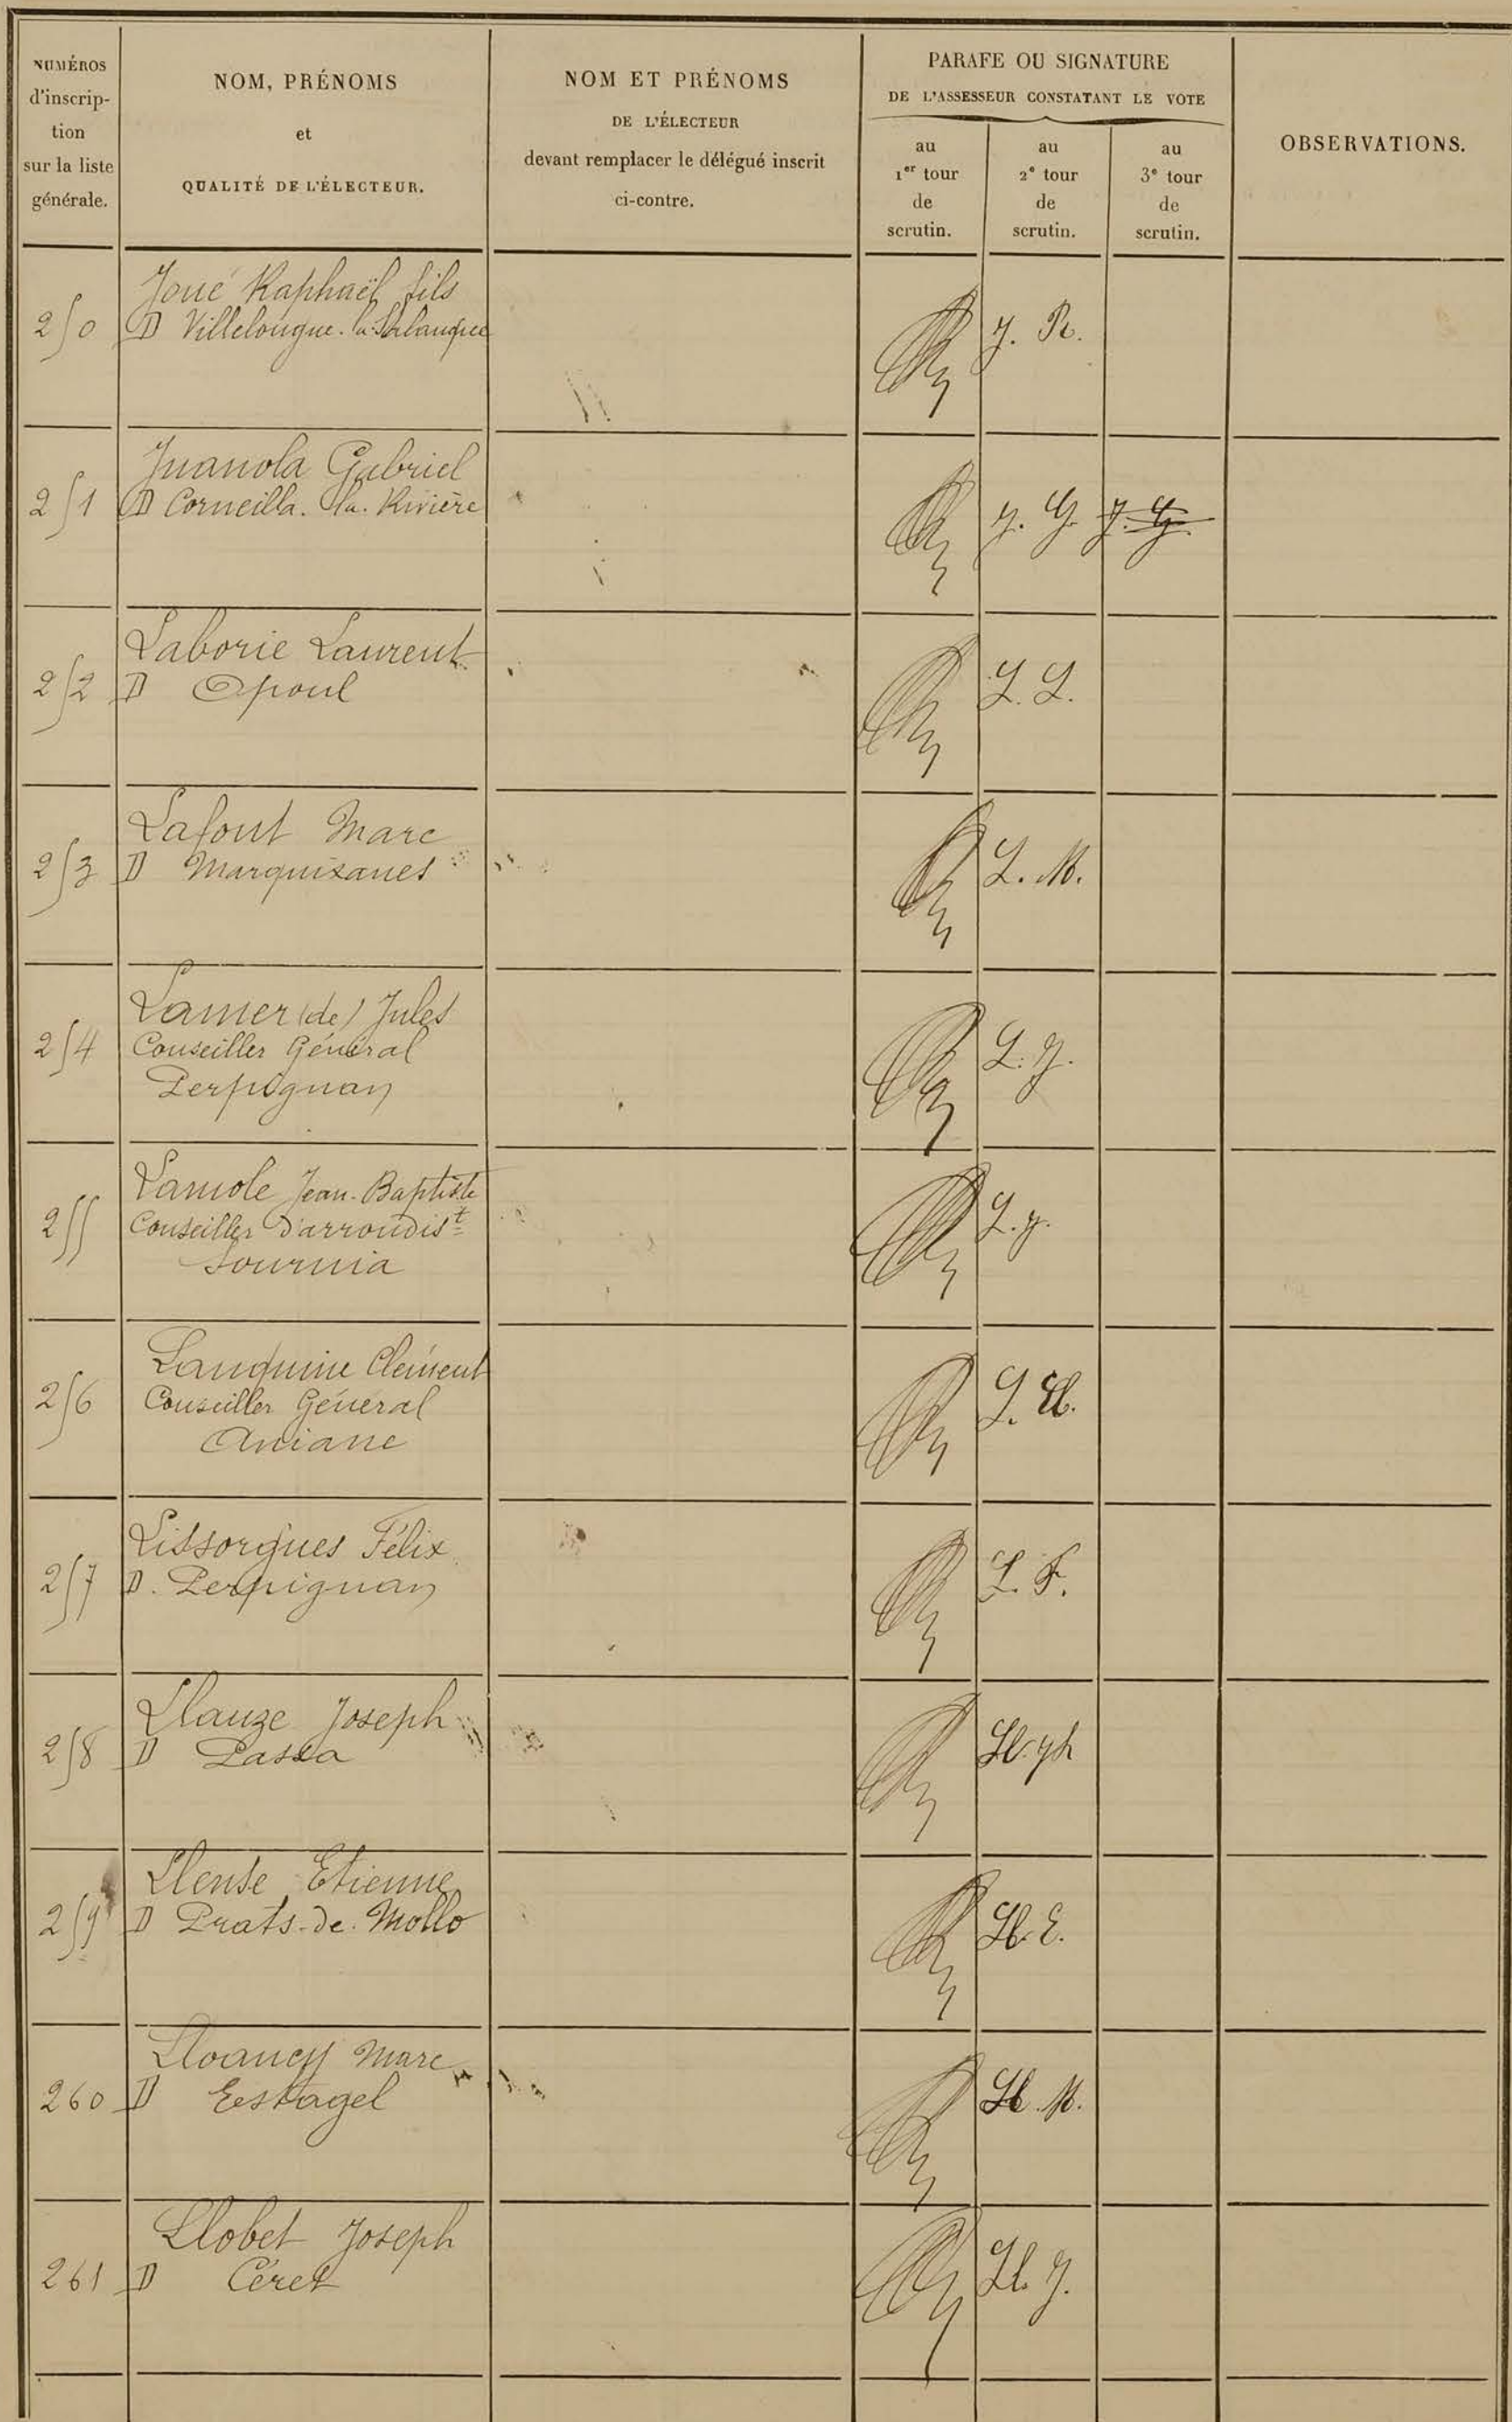 NUMÉROS
d'inscrip-
tion
sur la liste
générale.
NOM, PRÉNOMS
et
QUALITÉ DE L'ÉLECTEUR.
NOM ET PRÉNOMS
DE L'ÉLECTEUR
devant remplacer le délégué inscrit
ci-contre.
PARAFE OU SIGNATURE
DE L'ASSESSEUR CONSTATANT LE VOTE
au
1er tour
de
scrutin.
au
2e tour
de
scrutin.
au
3e tour
de
scrutin.
OBSERVATIONS.
250
Joué Raphaël fils
D Villelongue-la-Salanque
J. R.
251
Juanola Gabriel
D Corneilla-la-Rivière
J. G. J. G.
252
Laborie Laurent
D Opoul
L. L.
253
Lafont Marc
D Marquixanes
L. M.
254
Lamer (de) Jules
Conseiller Général
Perpignan
L. J.
255
Lamole Jean-Baptiste
Conseiller d'arrondist
Sournia
L. J.
256
Lanquine Clément
Conseiller Général
Aniane
L. Cl.
257
Lissorgues Félix
D. Perpignan
L. F.
258
Llauze Joseph
D Passa
Ll. Jh
259
Llense Etienne
D Prats-de-Mollo
Ll. E.
260
Marc
D Estagel
Ll. M.
261
Llobet Joseph
D Céret
Ll. J.